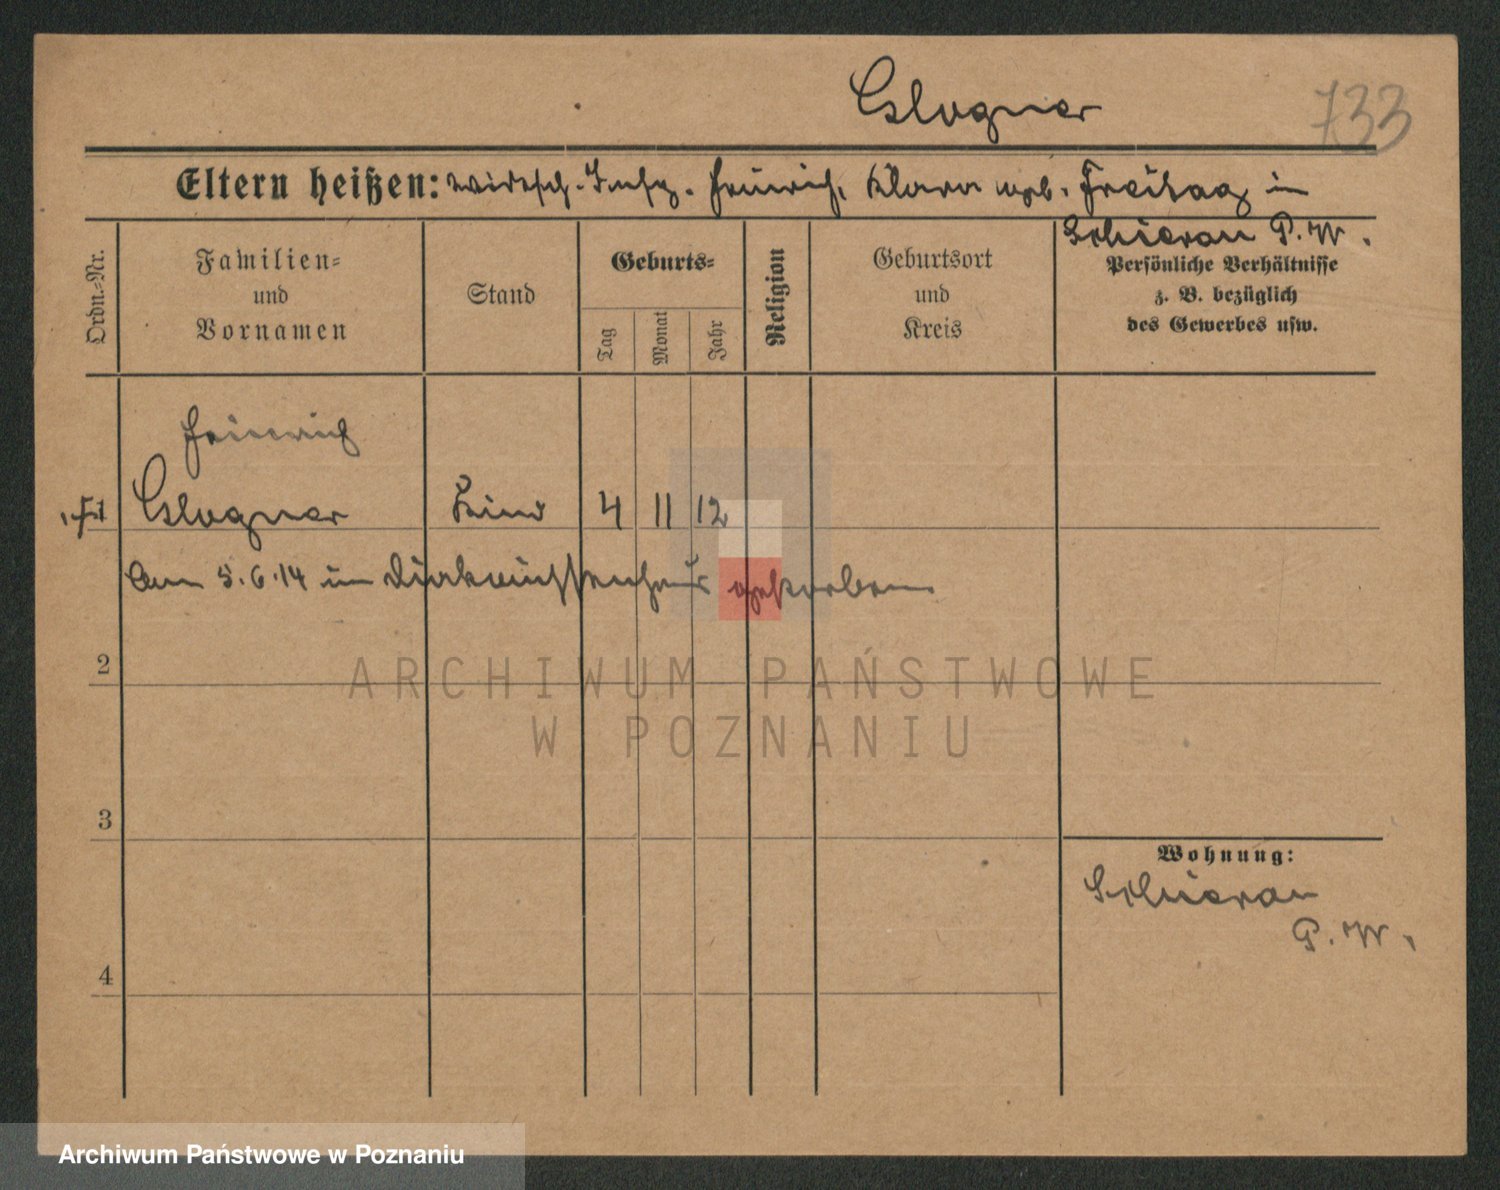 Glogner
733
Eltern heißen: Wirtsch.-Insp. Heinrich, Klara geb. Freitag in
Schieran P. W.
Ordn.-Nr.
Familien-
und
Vornamen
Stand
Geburts-
Tag
Monat
Jahr
Religion
Geburtsort
und
Kreis
Persönliche Verhältnisse
z. B. bezüglich
des Gewerbes usw.
Heinrich
1 Glogner Kind 4 11 12
Am 5.6.14 im Diakonissenhaus gestorben
2
ARCHIWUM PAŃSTWOWE
W POZNANIU
3
Wohnung:
Schieran
P. W.
4
Archiwum Państwowe w Poznaniu